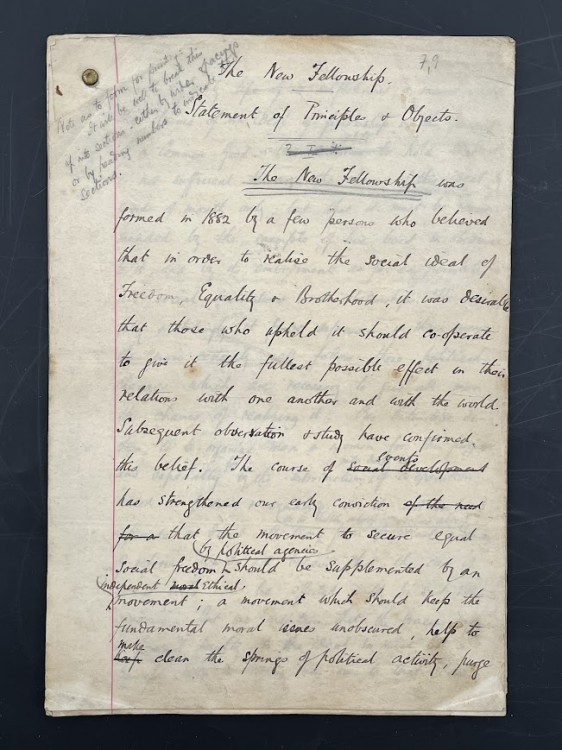 7,9
Note as to form for print -
it will be well to break this
up into sections - either by wider spacings
or by placing numbers to indicate the
sections.
The New Fellowship.
Statement of Principles & Objects.
The New Fellowship was
formed in 1882 by a few persons who believed
that in order to realise the social ideal of
Freedom, Equality & Brotherhood, it was desirable
that those who upheld it should co-operate
to give it the fullest possible effect in their
relations with one another and with the world.
Subsequent observation & study have confirmed
this belief. The course of social development
events
has strengthened our early conviction of the need
for a that the movement to secure equal
by political agencies
social freedom should be supplemented by an
independent moral Ethical
movement; a movement which should keep the
fundamental moral issues unobscured, help to
make
keep clean the springs of political activity, purge